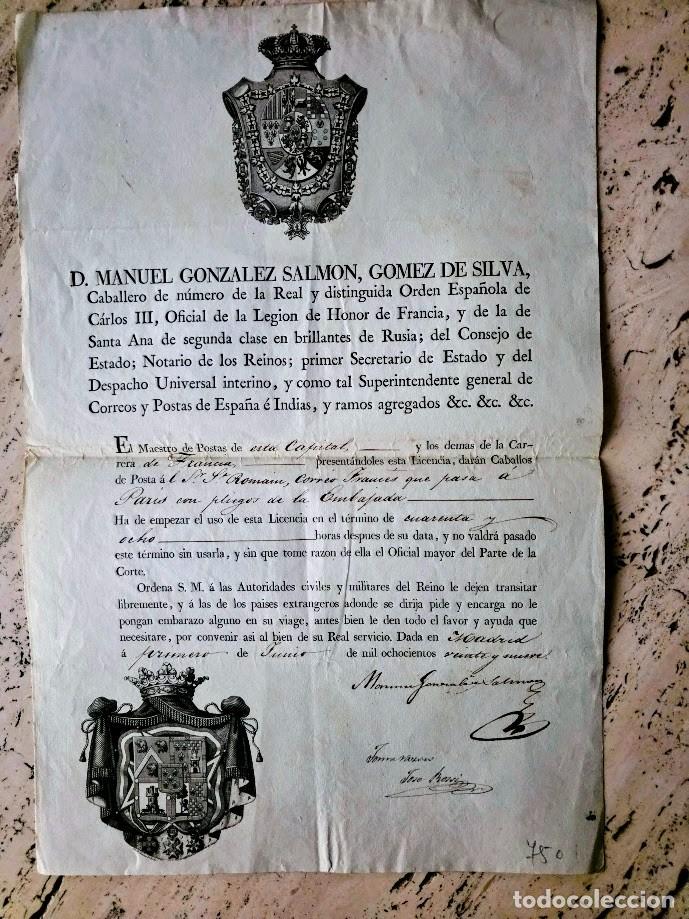 D. MANUEL GONZALEZ SALMON, GOMEZ DE SILVA,
Caballero de número de la Real y distinguida Orden Española de
Cárlos III, Oficial de la Legion de Honor de Francia, y de la de
Santa Ana de segunda clase en brillantes de Rusia; del Consejo de
Estado; Notario de los Reinos; primer Secretario de Estado y del
Despacho Universal interino, y como tal Superintendente general de
Correos y Postas de España é Indias, y ramos agregados &c. &c. &c.
El Maestro de Postas de esta Capital, y los demas de la Car-
rera de Francia, presentándoles esta Licencia, darán Caballos
de Posta á l Sr. St. Romain, Correo Frances que pasa a
Paris con pliegos de la Embajada
Ha de empezar el uso de esta Licencia en el término de cuarenta y
ocho horas despues de su data, y no valdrá pasado
este término sin usarla, y sin que tome razon de ella el Oficial mayor del Parte de la
Corte.
Ordena S. M. á las Autoridades civiles y militares del Reino le dejen transitar
libremente, y á las de los paises extrangeros adonde se dirija pide y encarga no le
pongan embarazo alguno en su viage, antes bien le den todo el favor y ayuda que
necesitare, por convenir asi al bien de su Real servicio. Dada en Madrid
á primero de Junio de mil ochocientos veinte y nueve
Manuel Gonzalez Salmon
Jose
750
todocoleccion